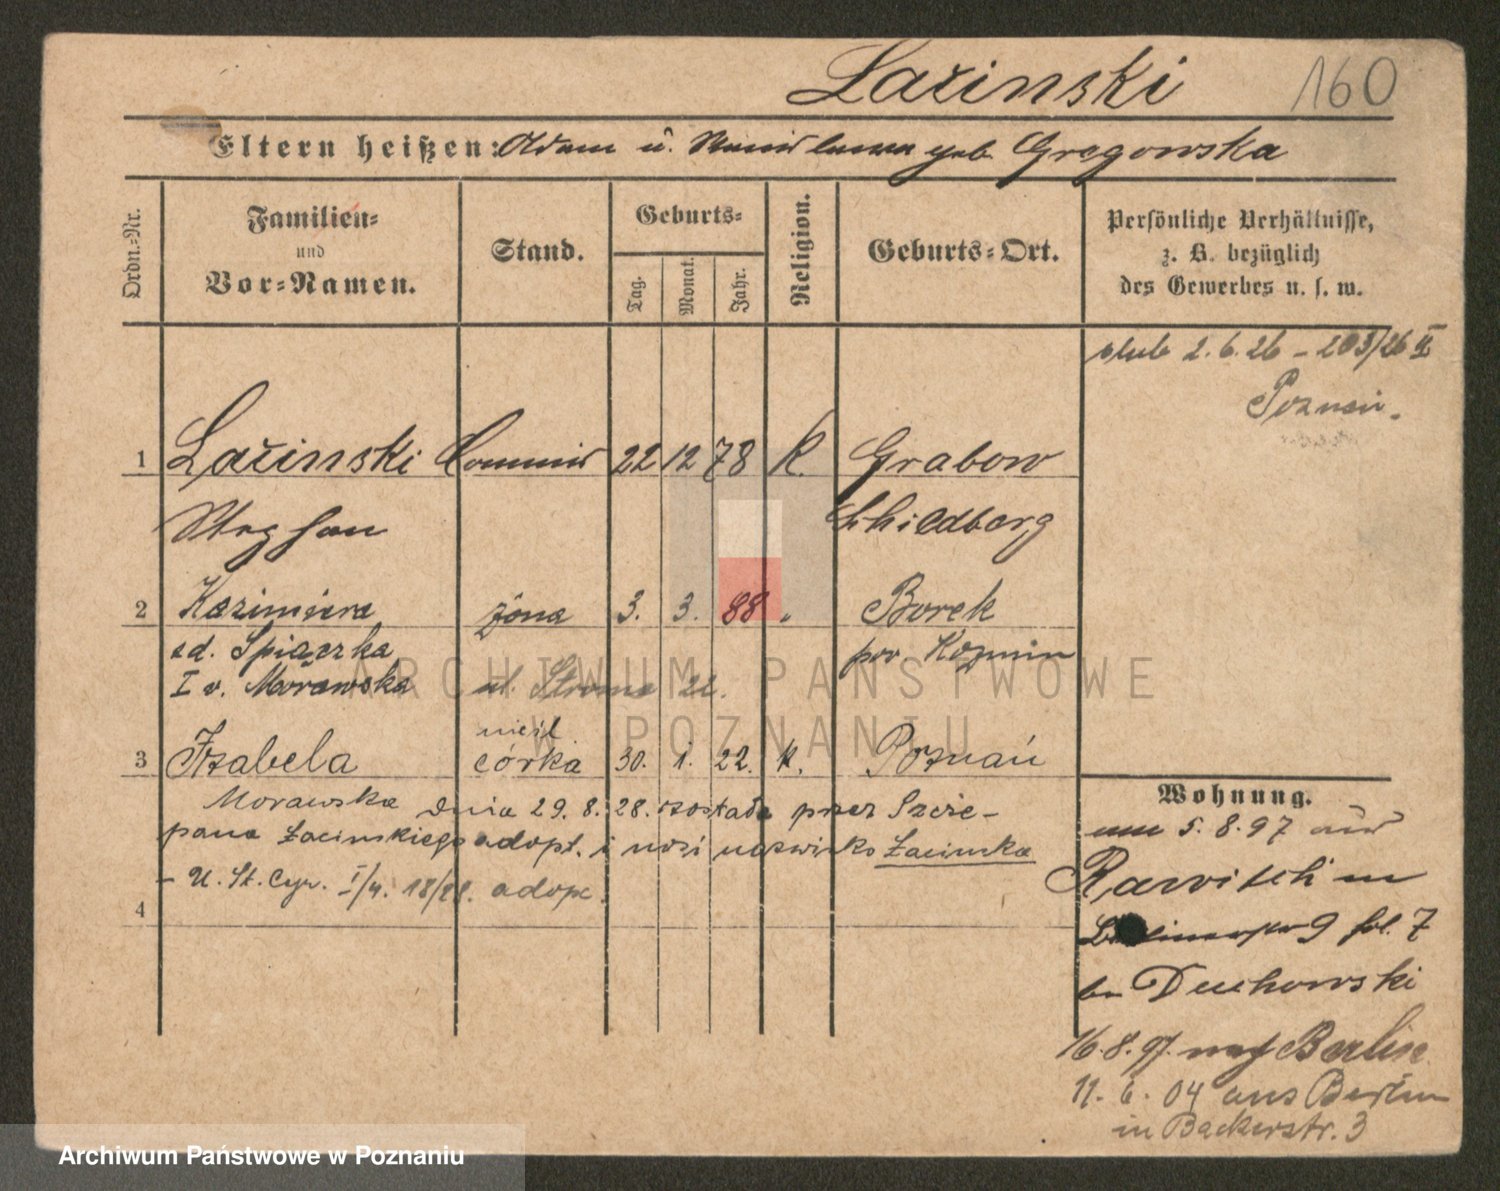 Lažinski 160
Eltern heißen: Adam u. Stanislawa geb. Gregowska
Ordn.=Nr.
Familien=
und
Vor=Namen.
Stand.
Geburts=
Tag.
Monat.
Jahr.
Religion.
Geburts=Ort.
Persönliche Verhältnisse,
z. B. bezüglich
des Gewerbes u. s. w.
ślub 2.6.26 – 203/26 II
Poznań.
1 Lažinski Commis 22 12 78 K. Grabow
Stephan Schildberg
2 Kazimiera żona 3. 3. 88 " Borek
zd. Spiączka pow. Kozmin
I v. Morawska ul. Stroma 22.
nieśl
3 Izabela córka 30. 1. 22. k. Poznań
Morawska dnia 29.8.28. została przez Szcze-
pana Łacinskiego adopt. i nosi nazwisko Łacinska
– U. St. Cyw. I/4. 18/28. adopc.
4
Wohnung.
5.8.97 aus
Rawitsch in
9 fol. 7
b. Duchowski
16.8.97 nach Berlin
11.6.04 aus Berlin
in Backerstr. 3
ARCHIWUM PAŃSTWOWE
W POZNANIU
Archiwum Państwowe w Poznaniu